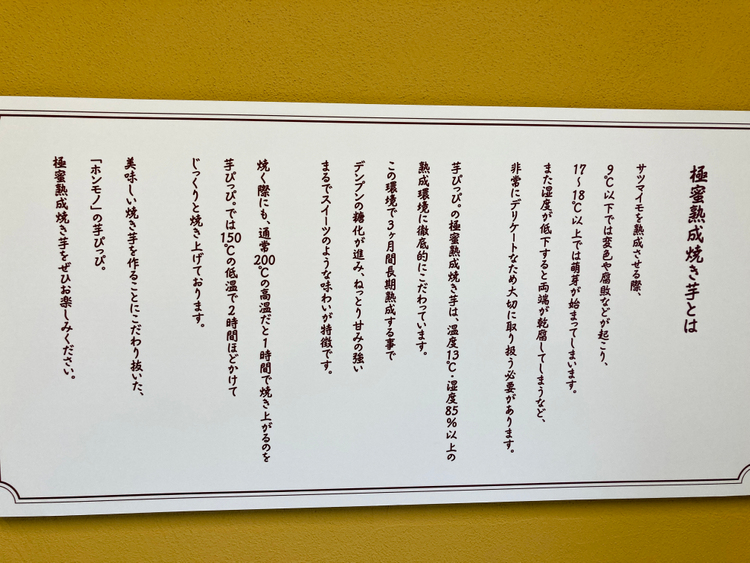 極蜜熟成焼き芋とは
サツマイモを熟成させる際、
9℃以下では変色や腐敗などが起こり、
17〜18℃以上では萌芽が始まってしまいます。
また湿度が低下すると両端が乾腐してしまうなど、
非常にデリケートなため大切に取り扱う必要があります。
芋ぴっぴ。の極蜜熟成焼き芋は、温度13℃・湿度85%以上の
熟成環境に徹底的にこだわっています。
この環境で3ヶ月間長期熟成する事で
デンプンの糖化が進み、ねっとり甘みの強い
まるでスイーツのような味わいが特徴です。
焼く際にも、通常200℃の高温だと1時間で焼き上がるのを
芋ぴっぴ。では150℃の低温で2時間ほどかけて
じっくりと焼き上げております。
美味しい焼き芋を作ることにこだわり抜いた、
「ホンモノ」の芋ぴっぴ。
極蜜熟成焼き芋をぜひお楽しみください。